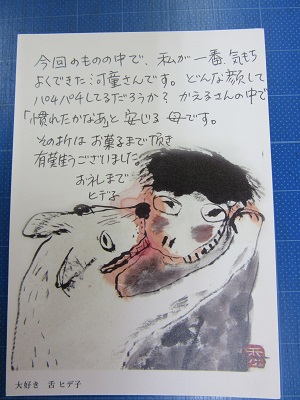 今回のものの中で、私が一番、気もち
よくできた河童さんです。どんな顔して
パチパチしてるだろうか？かえるさんの中で
「慣れたかなあ」と安じる母です。
その折は お菓子まで頂き
有難うございました。
お礼まで…
ヒデ子
大好き 舌 ヒデ子